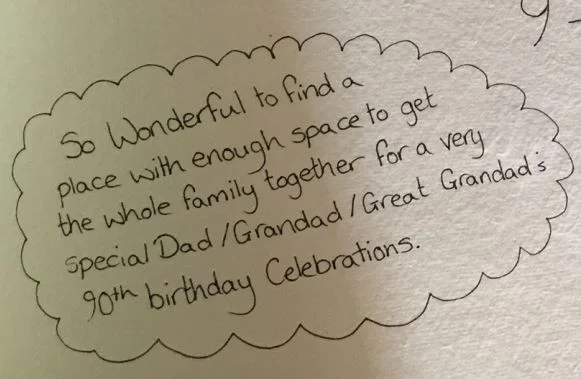 So Wonderful to find a
place with enough space to get
the whole family together for a very
special Dad / Grandad / Great Grandad's
90th birthday Celebrations.